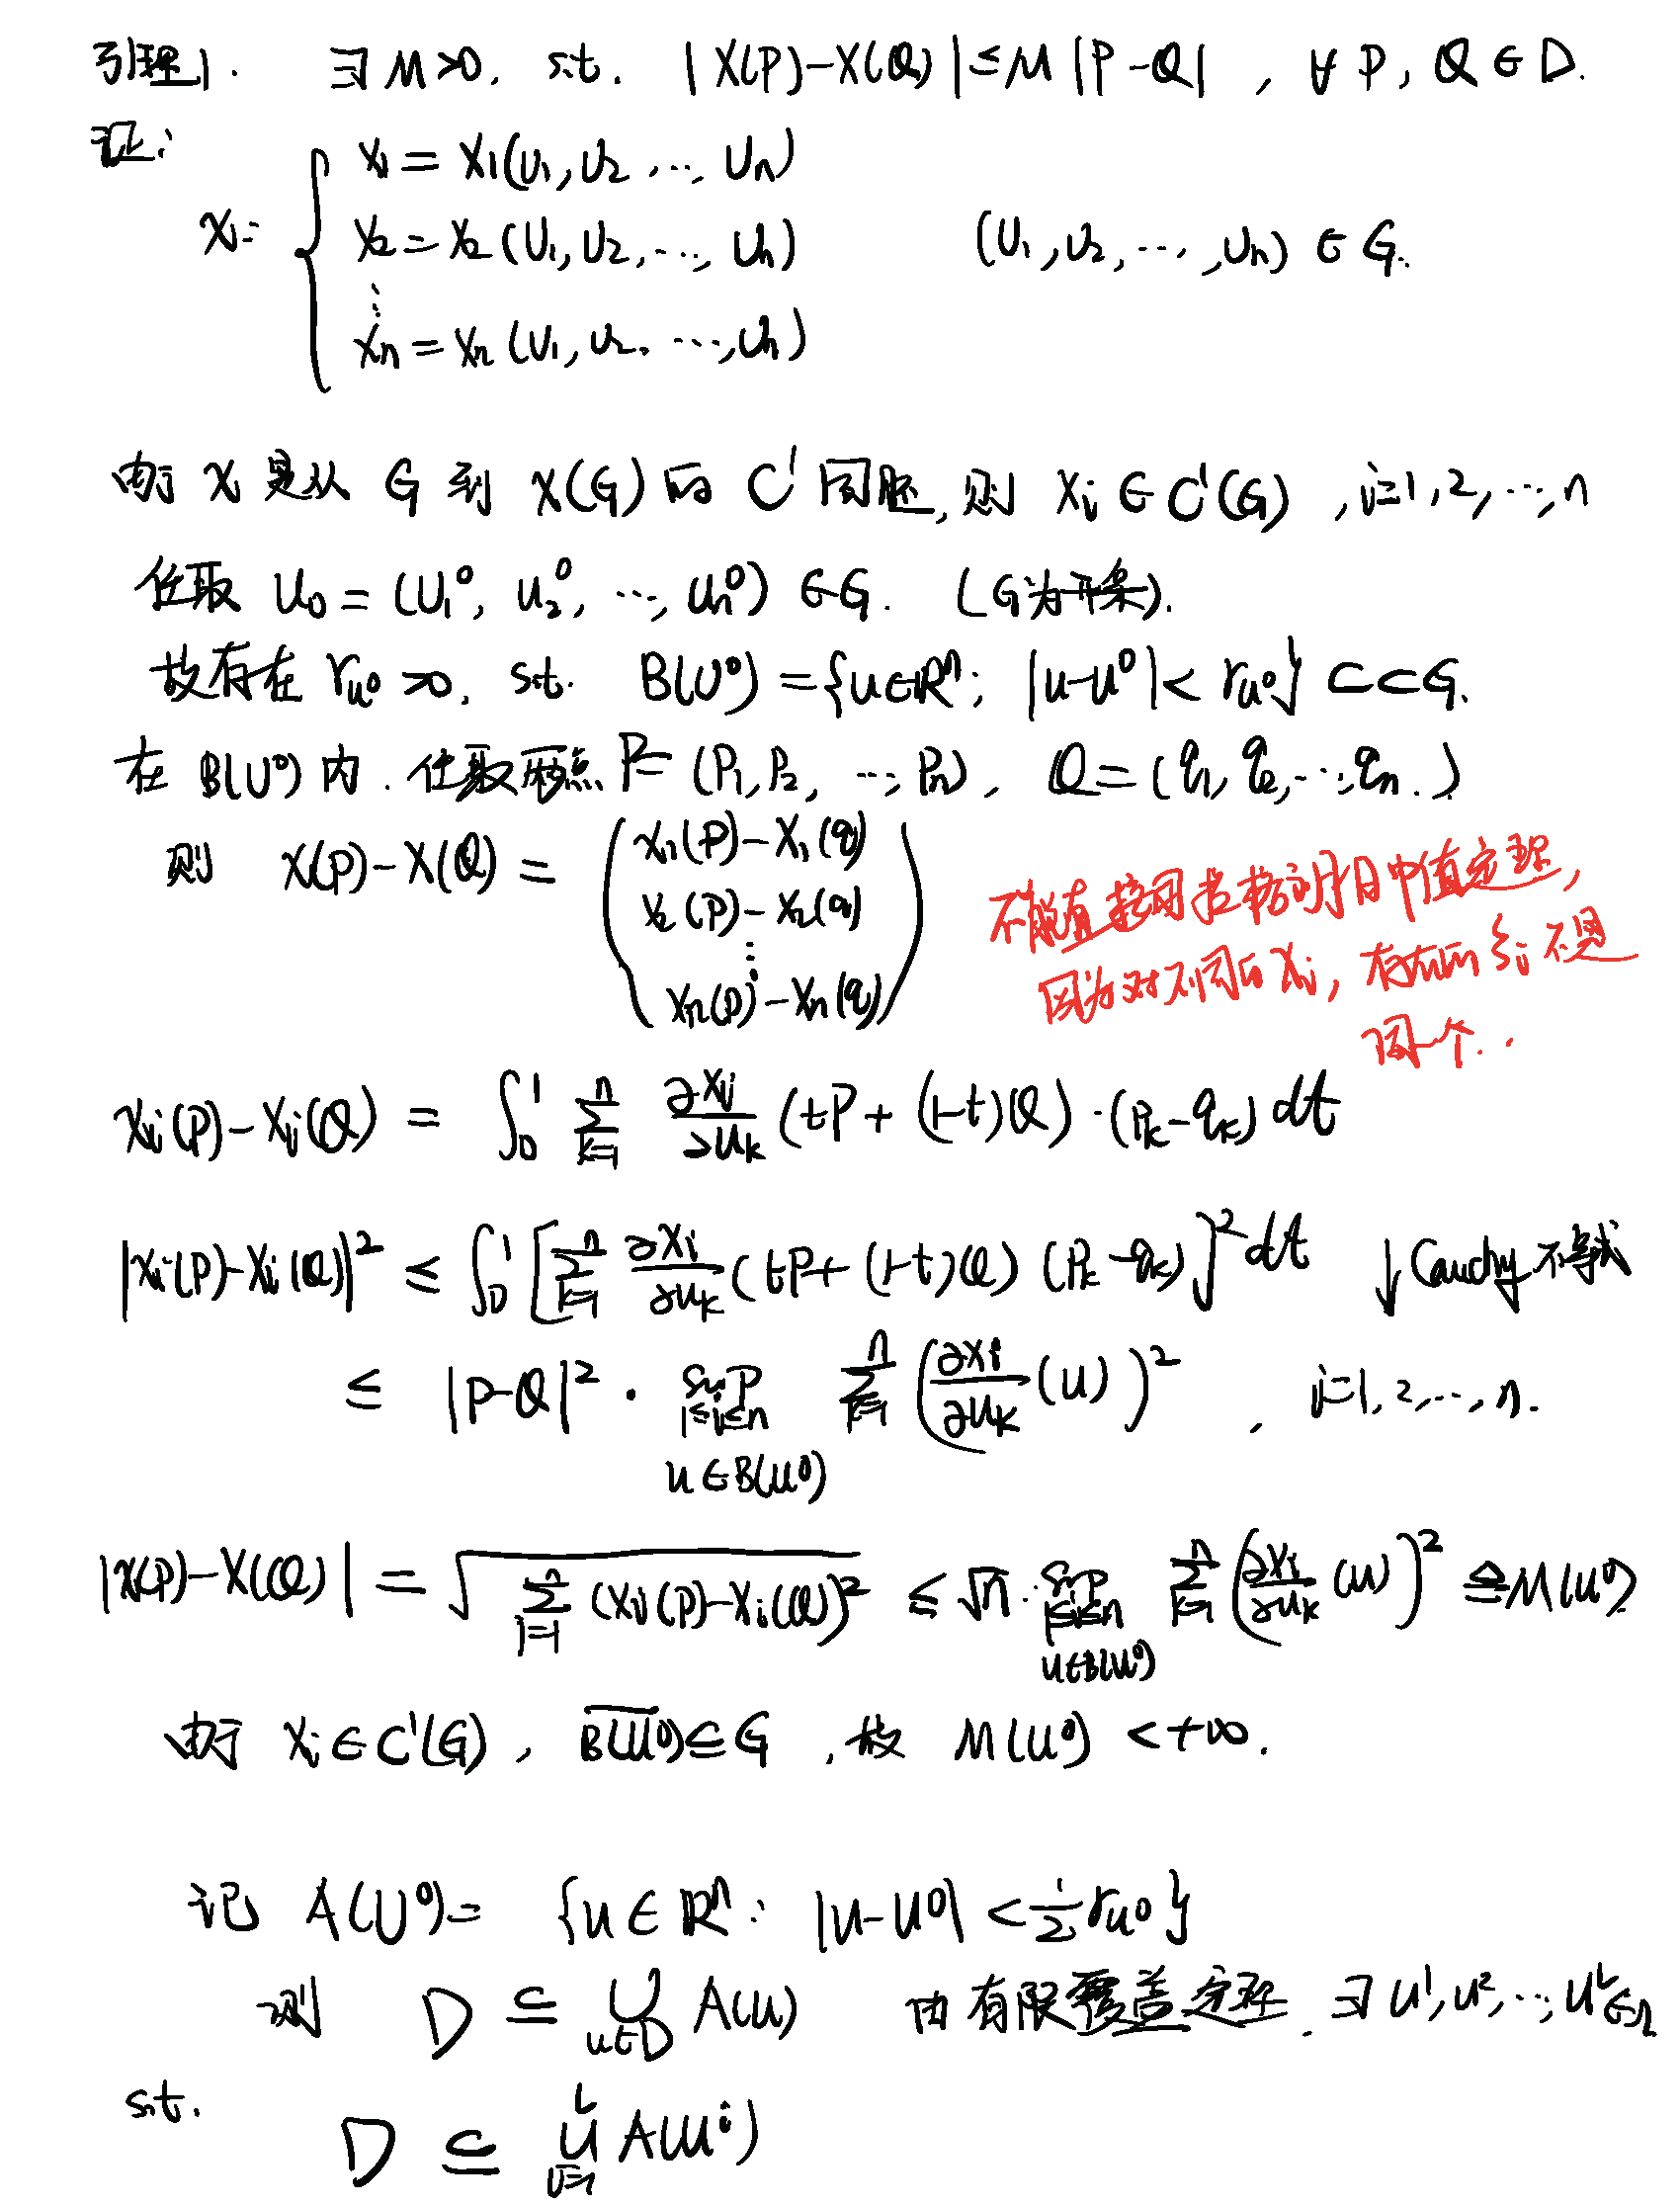 引理1. ∃ M>0, s.t. |X(P)-X(Q)|≤M|P-Q| , ∀ P, Q∈D.
证:
X= { x₁=x₁(u₁,u₂,…,uₙ)
x₂=x₂(u₁,u₂,…,uₙ) (u₁,u₂,…,uₙ)∈G.
⋮
xₙ=xₙ(u₁,u₂,…,uₙ)
由于 X 是从 G 到 X(G) 的 C¹ 同胚, 则 xᵢ∈C¹(G) , i=1,2,…,n
任取 u₀=(u₁⁰, u₂⁰, …, uₙ⁰)∈G. (G为开集).
故存在 r_{u⁰}>0, s.t. B(u⁰)={u∈Rⁿ; |u-u⁰|<r_{u⁰}}⊂⊂G.
在 B(u⁰) 内. 任取两点 P=(p₁,p₂,…,pₙ), Q=(q₁,q₂,…,qₙ.)
则 X(P)-X(Q)= ( x₁(p)-x₁(q)
x₂(p)-x₂(q)
⋮
xₙ(p)-xₙ(q) )
不能直接用拉格朗日中值定理,
因为对不同的 xᵢ, 存在的 ξᵢ 不是
同一个..
xᵢ(P)-xᵢ(Q) = ∫₀¹ ∑_{k=1}^n ∂xᵢ/∂u_k (tP+(1-t)Q)·(p_k-q_k) dt
|xᵢ(P)-xᵢ(Q)|² ≤ ∫₀¹ [∑_{k=1}^n ∂xᵢ/∂u_k (tP+(1-t)Q) (p_k-q_k)]² dt ↓Cauchy不等式
≤ |P-Q|² · sup_{1≤i≤n, u∈B(u⁰)} ∑_{k=1}^n (∂xᵢ/∂u_k (u))² , i=1,2,…,n.
|X(P)-X(Q)| = √(∑_{i=1}^n (xᵢ(P)-xᵢ(Q))²) ≤ √n · sup_{1≤i≤n, u∈B(u⁰)} ∑_{k=1}^n (∂xᵢ/∂u_k (u))² ≜ M(u⁰)
由于 xᵢ∈C¹(G) , \overline{B(u⁰)}⊆G , 故 M(u⁰)<+∞.
记 A(u⁰)= {u∈Rⁿ: |u-u⁰|<½r_{u⁰}}
则 D ⊆ ⋃_{u∈D} A(u) 由有限覆盖定理. ∃ u¹,u²,…,u^L∈Ω
s.t. D ⊆ ⋃_{i=1}^L A(uⁱ)